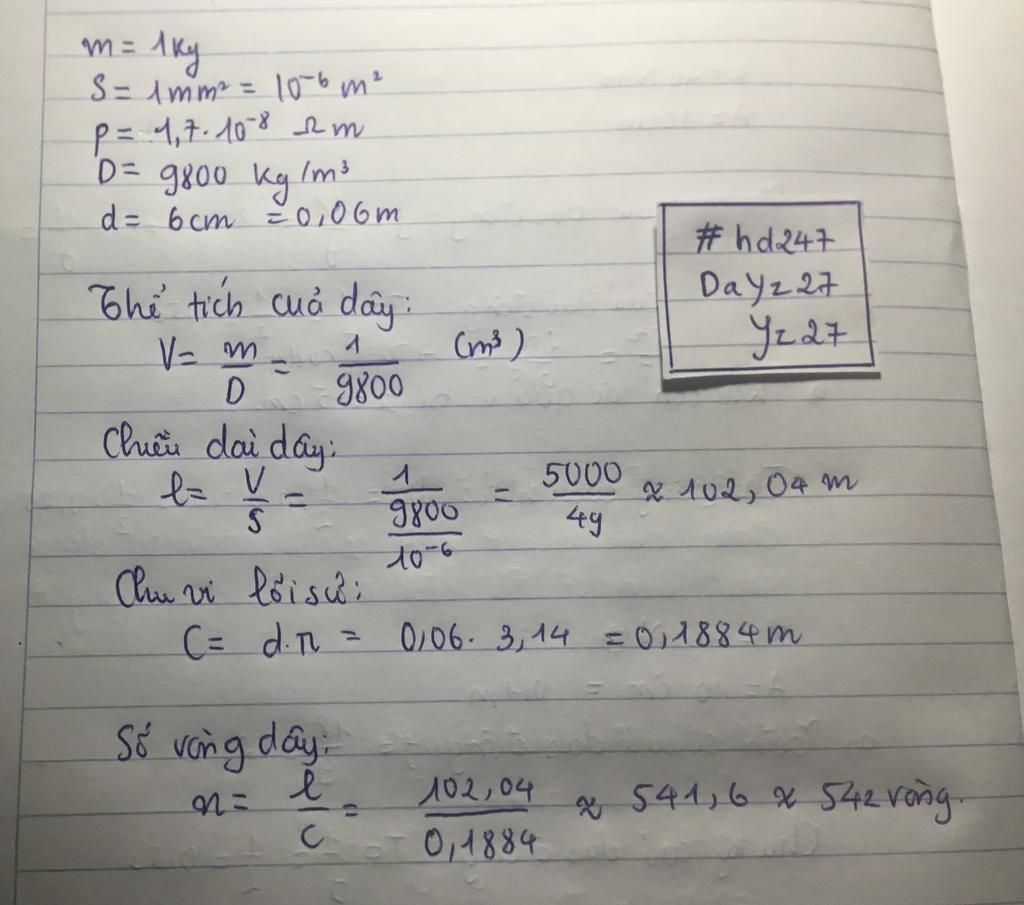 m = 1kg
S = 1mm² = 10⁻⁶ m²
ρ = 1,7.10⁻⁸ Ωm
D = 9800 kg/m³
d = 6cm = 0,06m
#hd247
DaYz27
Yz27
Thể tích cuả dây:
V = m/D = 1/9800 (m³)
Chiều daì dây:
l = V/S = (1/9800)/10⁻⁶ = 5000/49 ≈ 102,04 m
Chu vi lõi sứ:
C = d.π = 0,06. 3,14 = 0,1884m
Số vòng dây:
n = l/C = 102,04/0,1884 ≈ 541,6 ≈ 542 vòng.